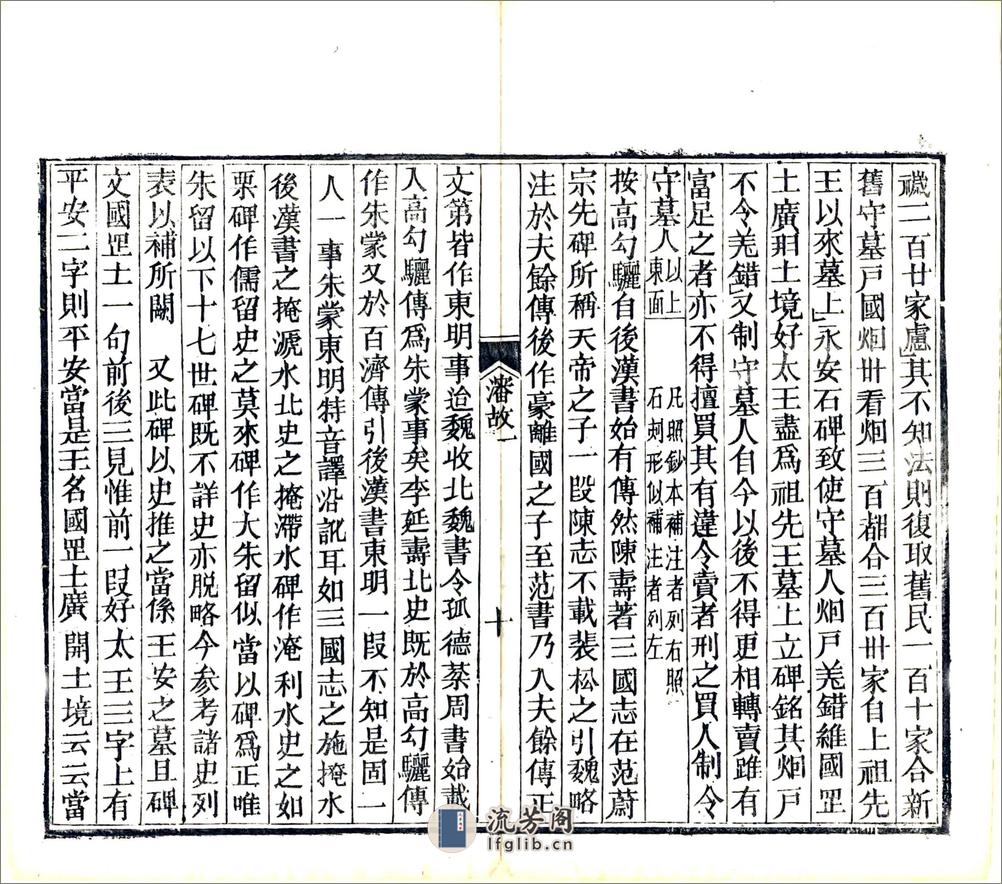 穢二百廿家慮其不知法則復取舊民一百十家合新
舊守墓戸國烟卅看烟三百都合三百卅家自上祖先
王以來墓上永安石碑致使守墓人烟戸羌錯維國罡
土廣開土境好太王盡爲祖先王墓上立碑銘其烟戸
不令羌錯又制守墓人自今以後不得更相轉賣雖有
富足之者亦不得擅買其有違令賣者刑之買人制令
守墓人以上東面　凡照鈔本補注者列右照石刻形似補注者列左
按高勾驪自後漢書始有傳然陳壽著三國志在范蔚
宗先碑所稱天帝之子一段陳志不載裴松之引魏略
注於夫餘傳後作豪離國之子至范書乃入夫餘傳正
瀋故一
十
文第皆作東明事迨魏收北魏書令狐德棻周書始載
入高勾驪傳爲朱蒙事矣李延壽北史既於高勾驪傳
作朱蒙又於百濟傳引後漢書東明一段不知是固一
人一事朱蒙東明特音譯沿訛耳如三國志之施掩水
後漢書之掩㴲水北史之掩滯水碑作淹利水史之如
栗碑作儒留史之莫來碑作大朱留似當以碑爲正唯
朱留以下十七世碑既不詳史亦脱略今參考諸史列
表以補所闕　又此碑以史推之當係王安之墓且碑
文國罡土一句前後三見惟前一段好太王三字上有
平安二字則平安當是王名國罡土廣開土境云云當
流芳阁
lfglib.cn